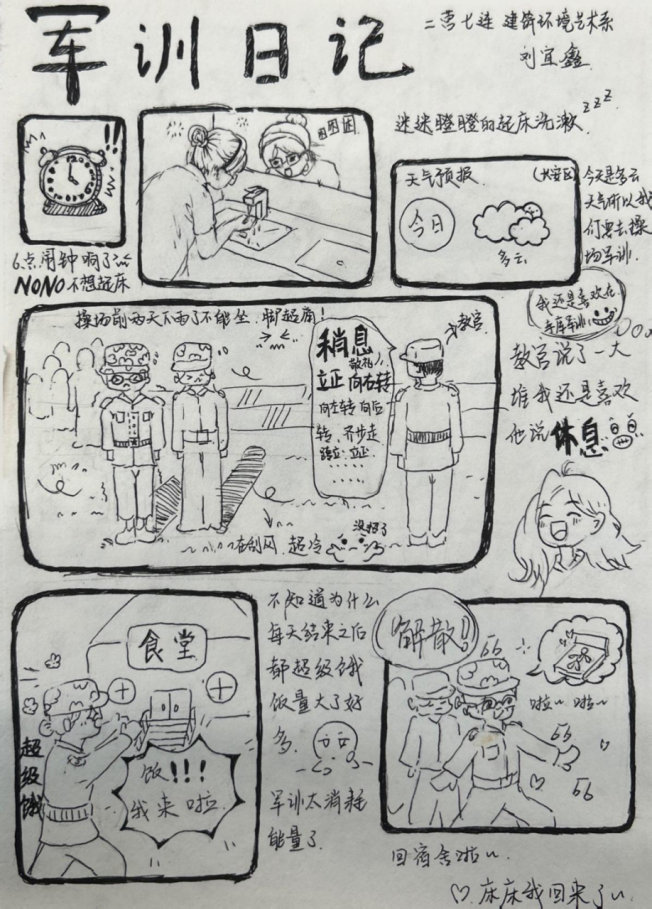 军训日记
二营七连 建筑环境艺术系
刘宜鑫
6点闹钟响了
NONO不想起床
困困困
迷迷瞪瞪的起床洗漱 zzz
天气预报
今日
多云
今天是多云
天气所以我
们要去操
场军训.
操场前两天下雨了不能坐.脚超痛!
稍息
敬礼!
立正 向右转
向左转 向后
转, 齐步走
跨立. 立正
......
教官
在刮风 超冷
没招了
我还是喜欢在
车库军训
教官说了一大
堆我还是喜欢
他说休息
食堂
超级饿
饭!!!
我来啦
不知道为什么
每天结束之后
都超级饿
饭量大了好
多.
军训太消耗
能量了.
解散!
啦~ 啦~
回宿舍啦~
♡.床床我回来了~